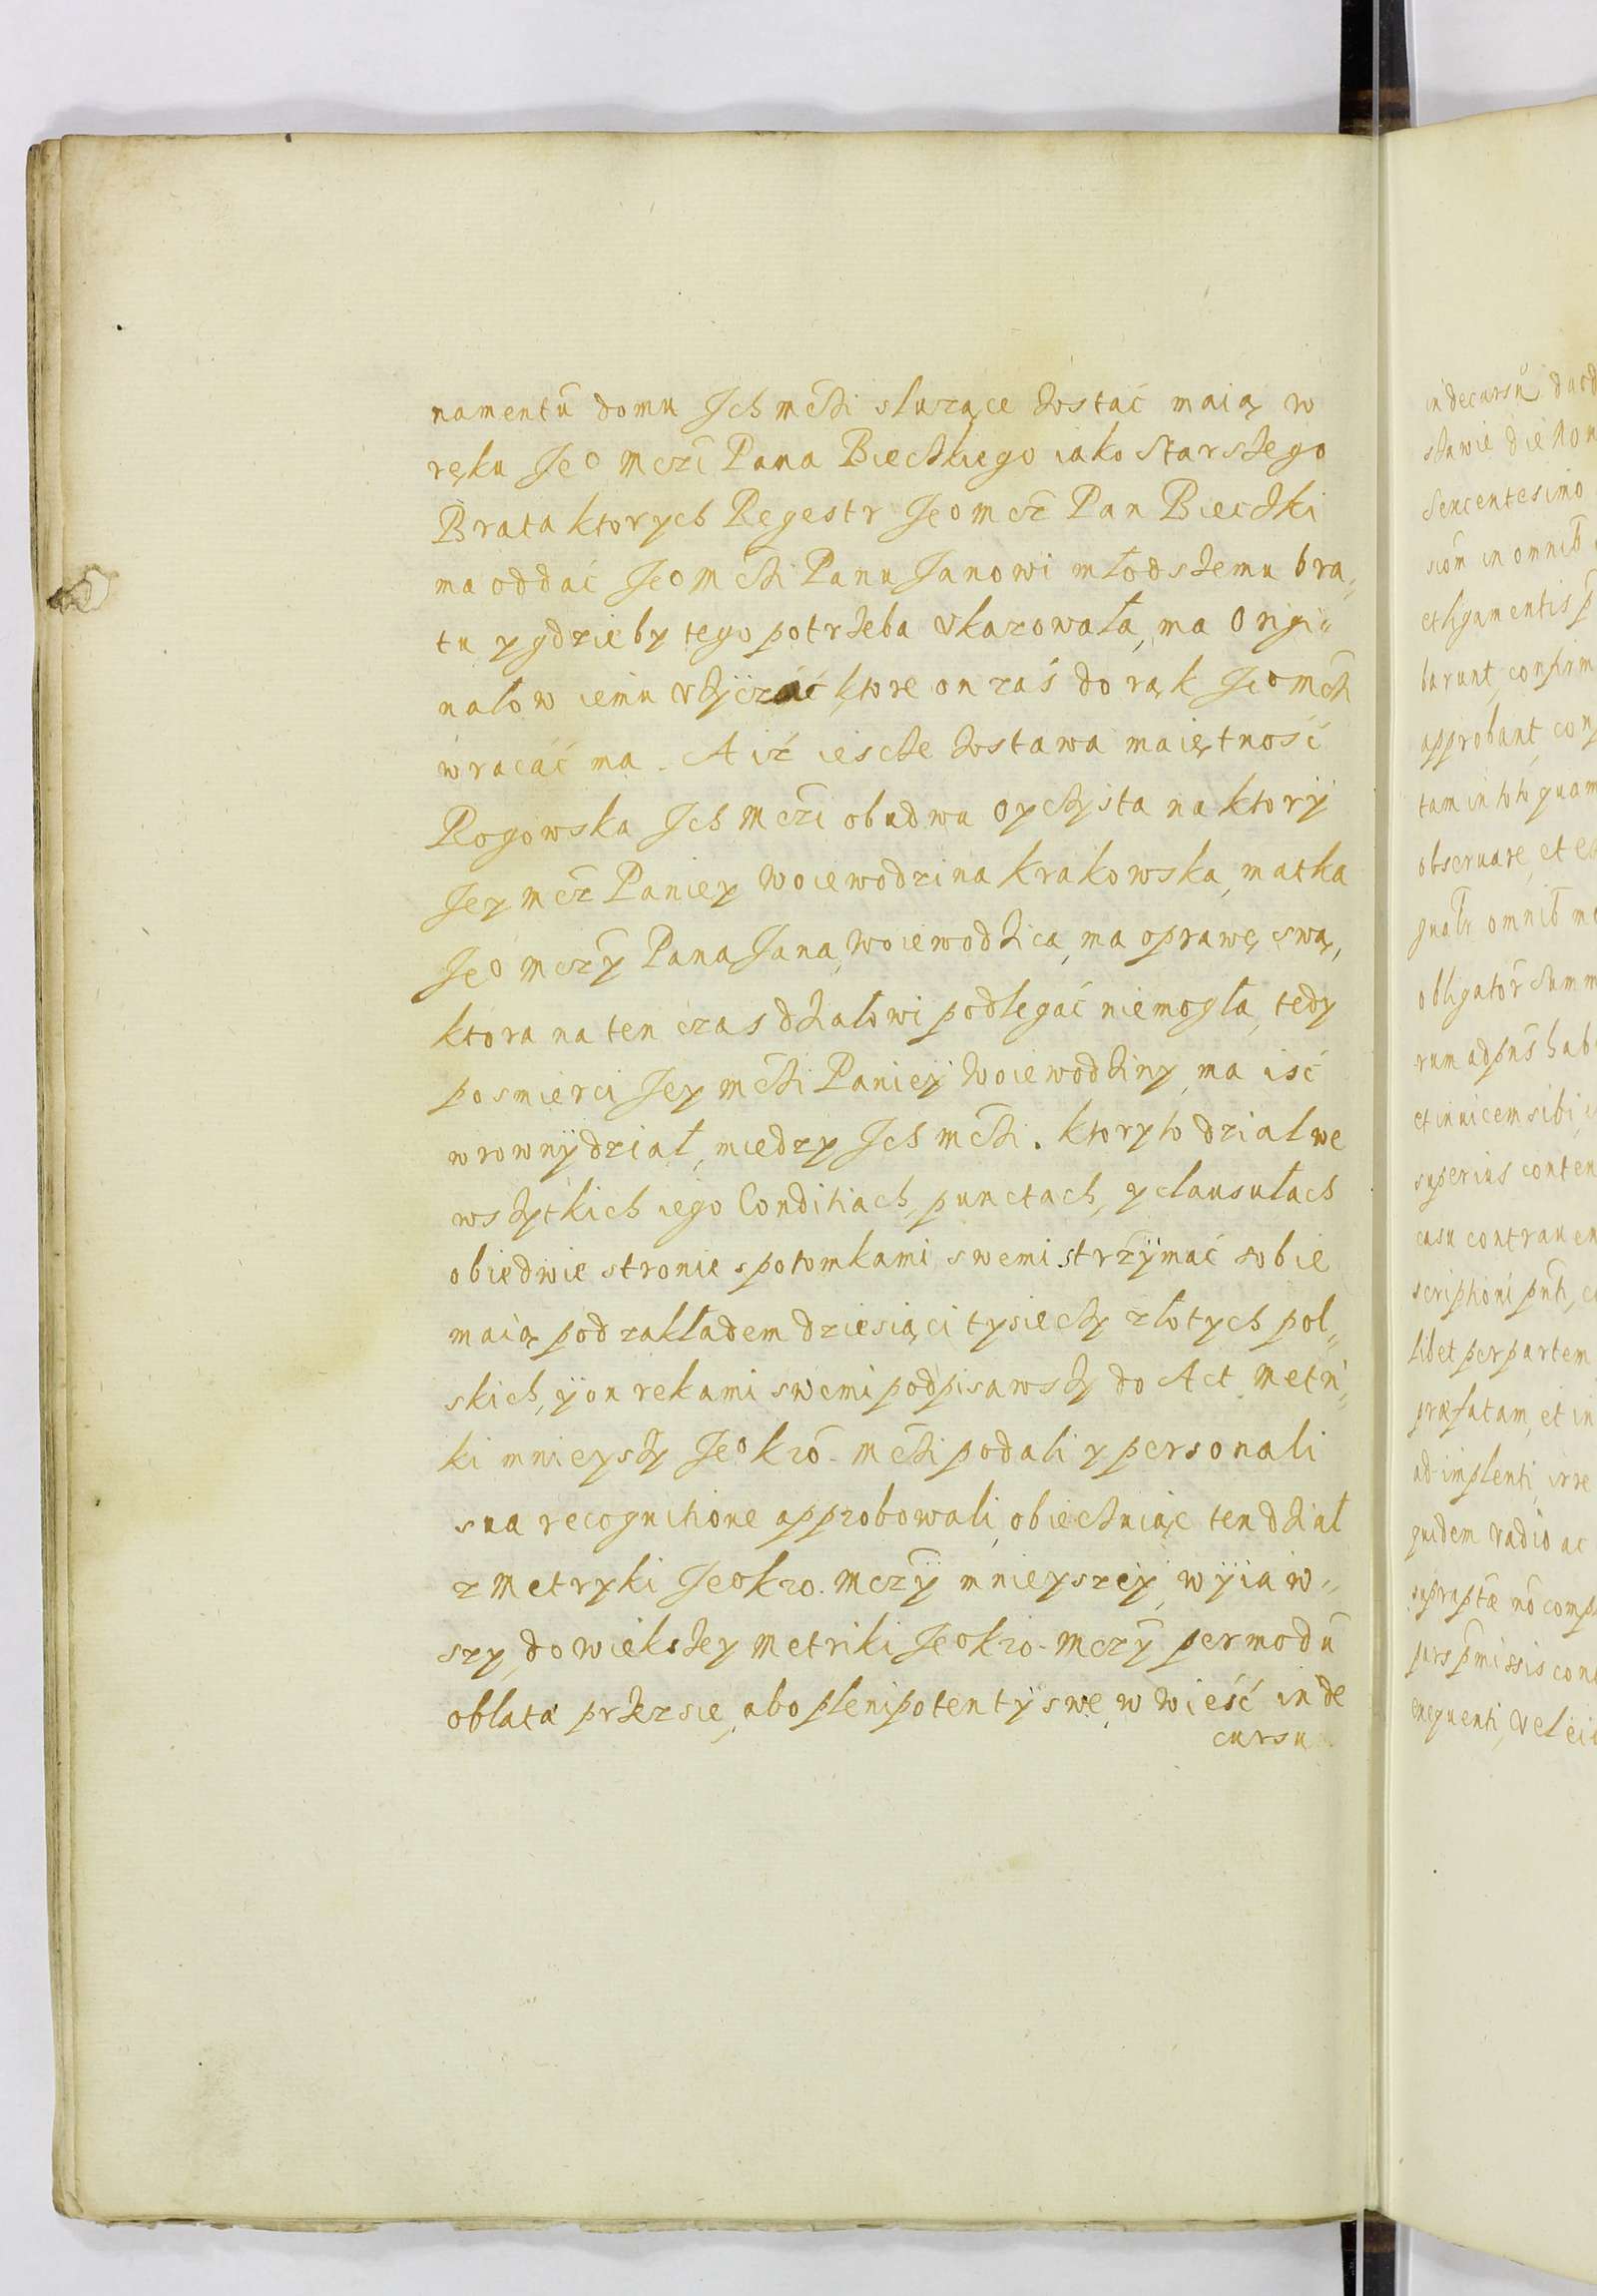 namentũ domu Jch mczi służące zostać maią w
ręku Jeo Mczi Pana Bieczkiego iako Starszego
Brata ktorych Regestr Jeo mcz Pan Bieczki
ma oddać Jeo Mczi Panu Janowi młodszemu bra„
tu y gdzieby tego potrzeba vkazowała, ma Origi„
nałow iemu vżÿczać, ktore on zaś do rąk Jeo mczi
wracać ma. A iż iescze zostawa maiętność
Rogowska Jch Mczi obudwu oyczysta na ktorÿ
Jey mcz Paniey Woiewodzina Krakowska, matka
Jeo Mczy Pana Jana, Woiewodzica, ma oprawę swą,
ktora na ten czas działowi podlegać niemogła, tedy
po smierci Jey mczi Panieÿ Woiewodziny, ma iść
w rownÿ dział, miedzy Jch mczi. Ktory to dział we
wszytkich iego Conditiach, punctach, y clausułach
obiedwie stronie s potomkami swemi strzÿmać sobie
maią pod zakładem dziesiąci tysieczy złotych pol„
skich, ÿ on rekami swemi podpisawszy do Act Metri„
ki mnieyszy Jeo kro. Mczi podali y personali
sua recognitione approbowali, obiecżuiąc ten dział
z Metryki Jeo kro. Mczÿ mnieyszeÿ, wÿiaw„
szy, do wiekszey Metriki Jeo kro. Mczÿ per modũ
oblatæ przez sie, abo plenipotentÿ swe, w zieść in de
cursu
in decursũ
die Non
Sexcentesimo
in omnib
et ligamentis
barunt, confirm
approbant, con
tam in toto quam
obseruare, et
omnib
obligator Sum m
rum ad pñs hab
et inuicem sibi
superius conten
casu contrauen
scriptioni pñti,
libet per partem
præfatam, et in
adimplenti, irre
quidem vadio ac
supraptæ nõ comp
pars pmissis con
exequenti, vel ei